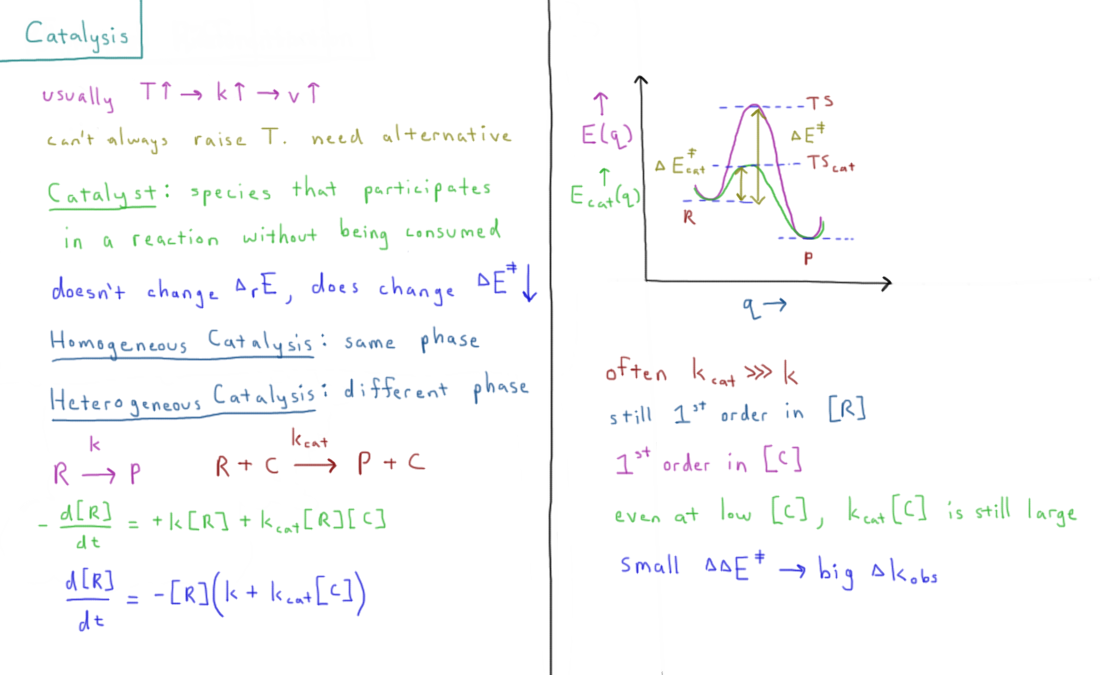 Catalysis
usually T↑ → k↑ → v↑
can't always raise T. need alternative
Catalyst: species that participates
in a reaction without being consumed
doesn't change ΔᵣE, does change ΔE‡↓
Homogeneous Catalysis: same phase
Heterogeneous Catalysis: different phase
k
R → P
k_cat
R + C → P + C
- d[R]/dt = +k[R] + k_cat[R][C]
d[R]/dt = -[R](k + k_cat[C])
↑
E(q)
↑
E_cat(q)
TS
ΔE‡
ΔE‡_cat
TS_cat
R
P
q →
often k_cat >>> k
still 1st order in [R]
1st order in [C]
even at low [C], k_cat[C] is still large
small ΔΔE‡ → big Δk_obs